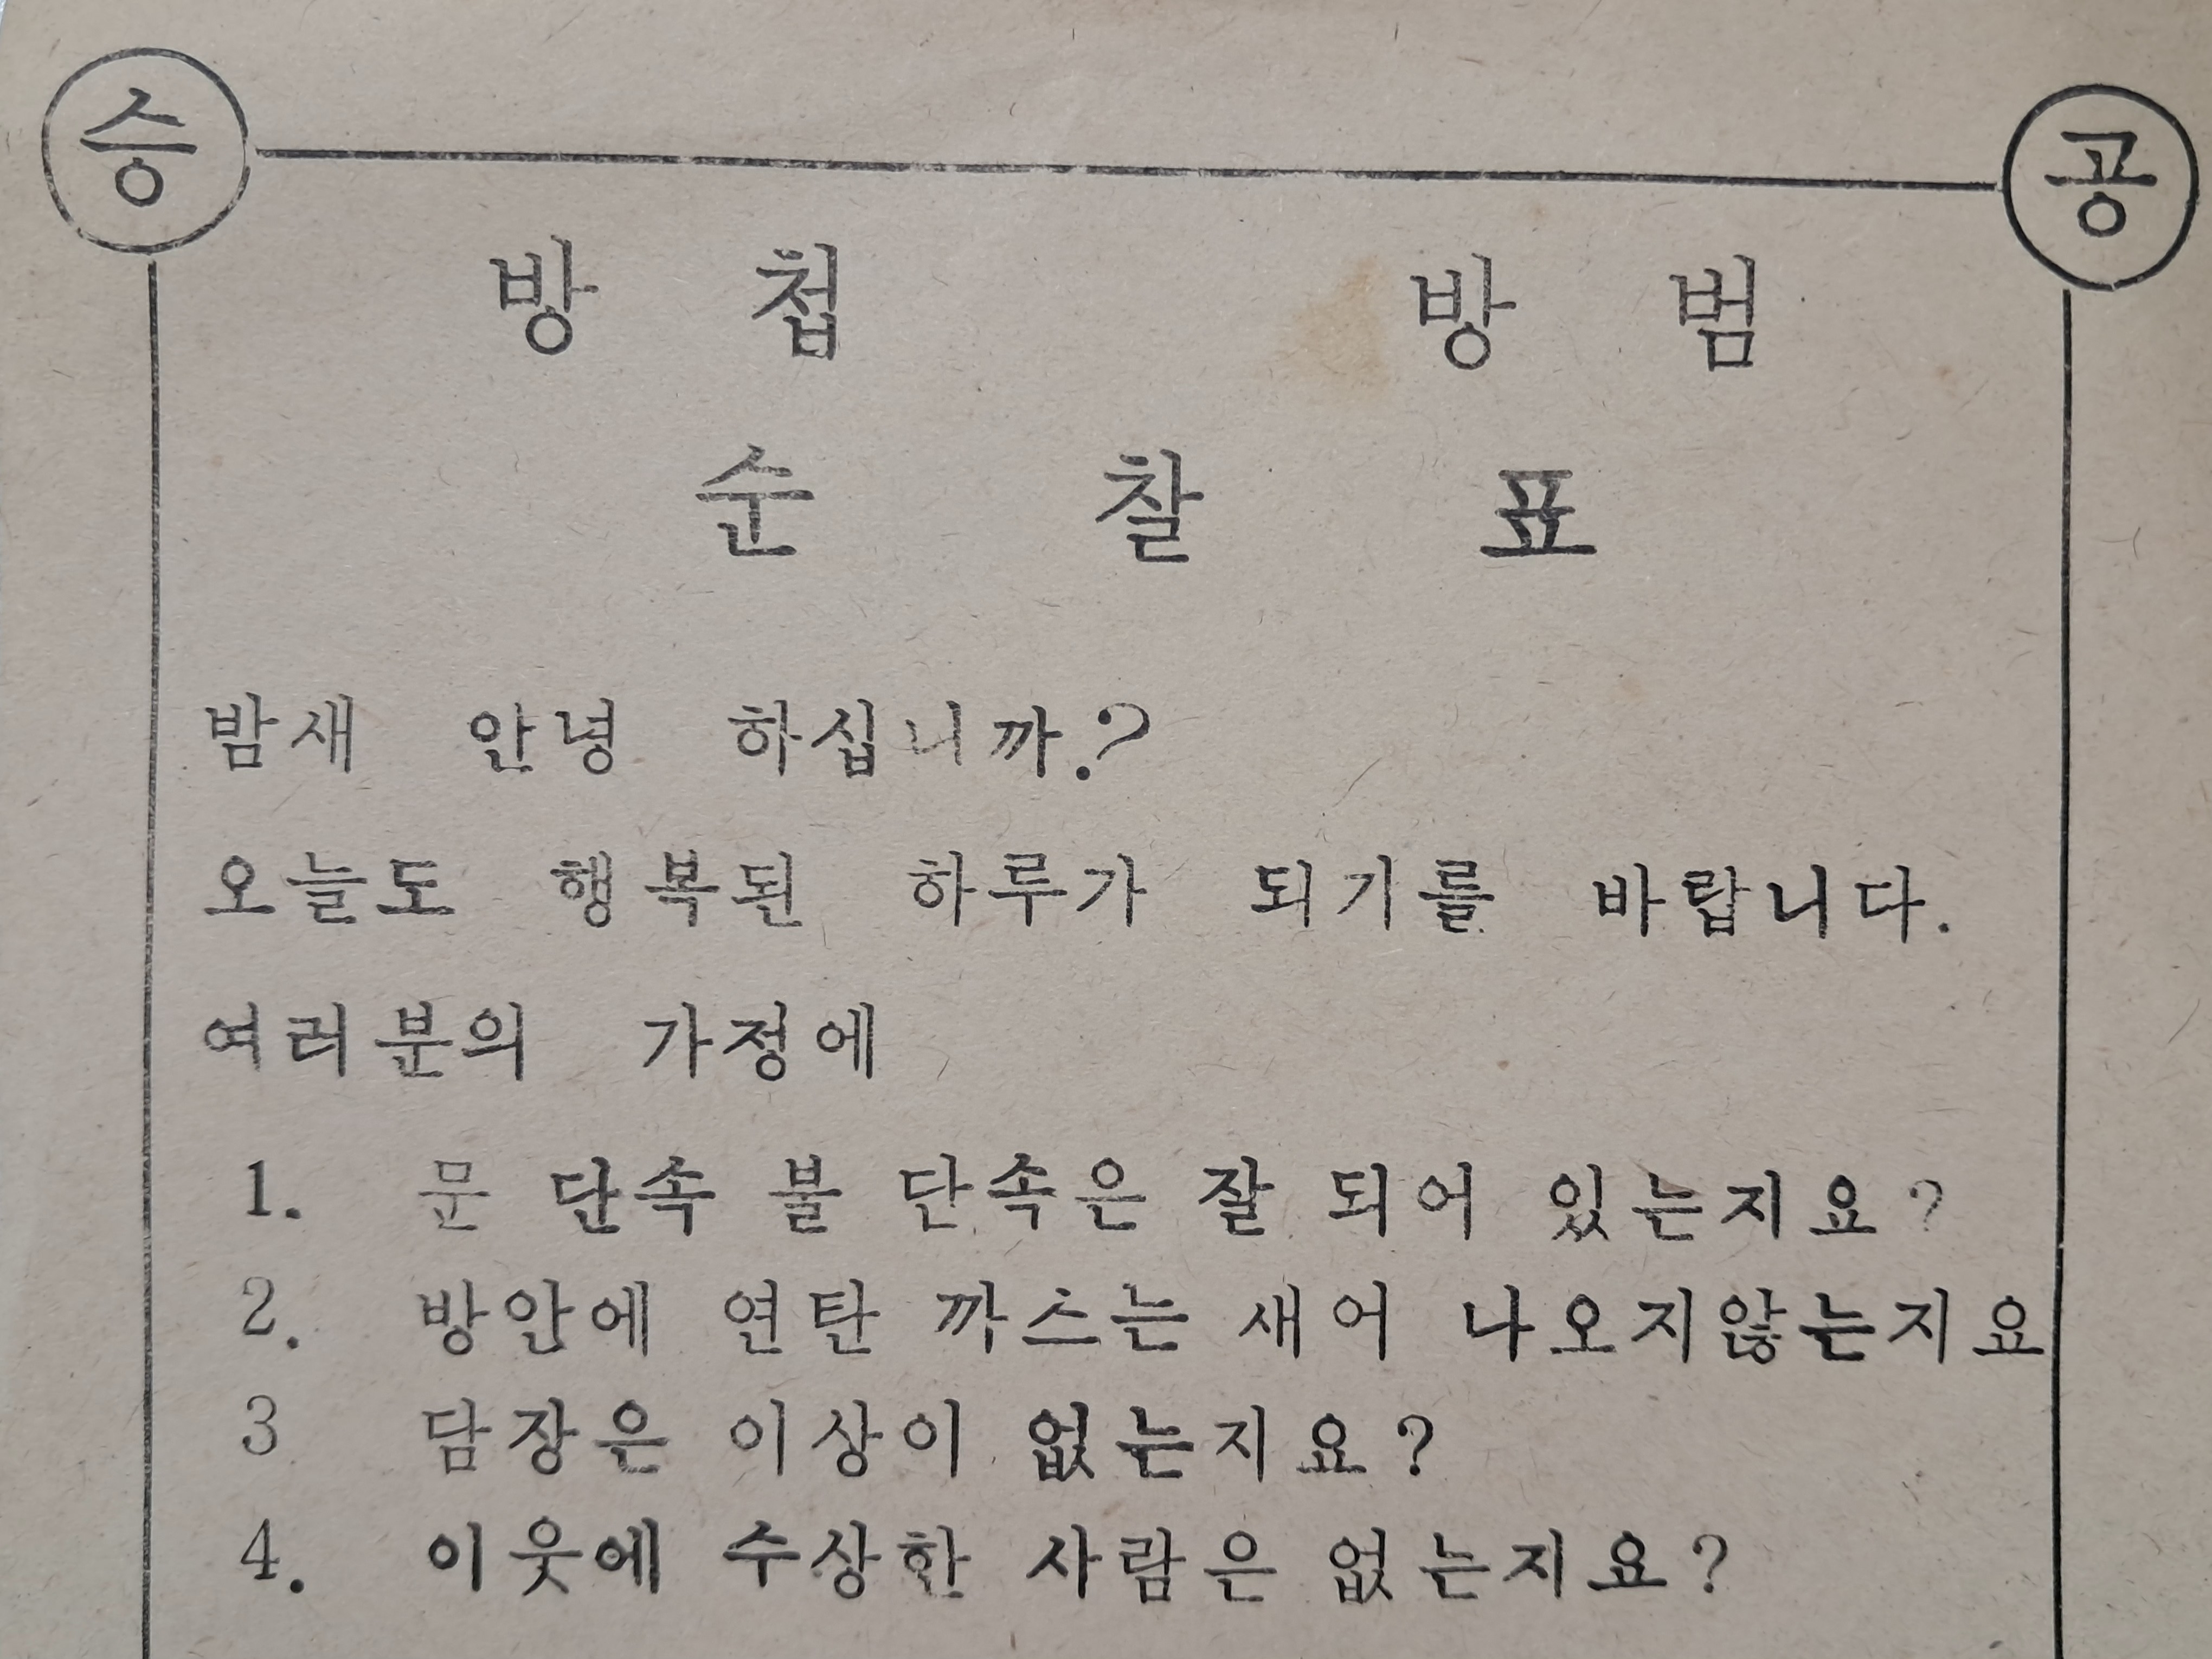 승 공
방 첩 방 범
순 찰 표
밤새 안녕 하십니까?
오늘도 행복된 하루가 되기를 바랍니다.
여러분의 가정에
1. 문 단속 불 단속은 잘 되어 있는지요?
2. 방안에 연탄 까스는 새어 나오지않는지요
3 담장은 이상이 없는지요?
4. 이웃에 수상한 사람은 없는지요?